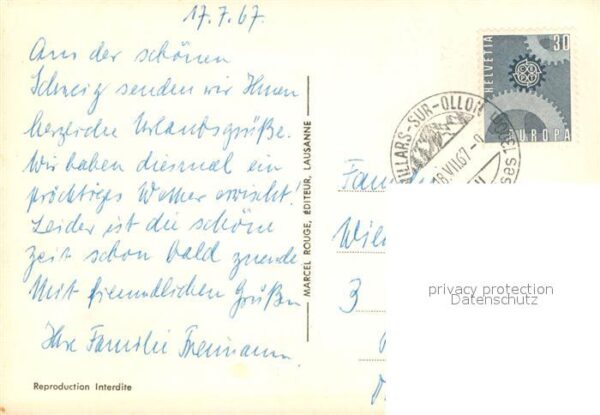 17.7.67.
Aus der schönen
Schweiz senden wir Ihnen
herzliche Urlaubsgrüße.
Wir haben diesmal ein
prächtiges Wetter erwischt!
Leider ist die schöne
Zeit schon bald zuende
Mit freundlichen Grüßen
Ihre Familie
Reproduction Interdite
MARCEL ROUGE, ÉDITEUR, LAUSANNE
HELVETIA
30
EUROPA
VILLARS-SUR-OLLON
18.VII.67
3
privacy protection
Datenschutz